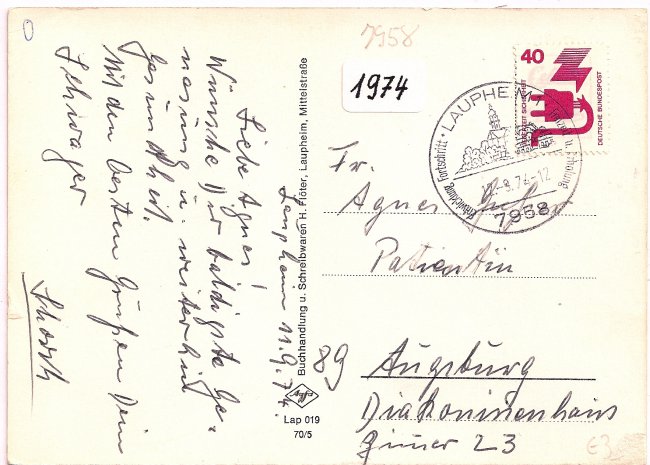 0
7958
1974
Laupheim 11.9.74.
Liebe Agnes!
Wünsche Dir baldigste Ge-
nesung u. weiterhin
Gesundheit.
Mit den besten Grüßen Dein
Schwager
Schorsch
Buchhandlung u. Schreibwaren H. Flöter, Laupheim, Mittelstraße
Lap 019
70/5
40
DEUTSCHE BUNDESPOST
LAUPHEIM
Fortschritt · Entwicklung
Erholung
74-12
7958
Fr.
Agnes
Patientin
89 Augsburg
Diakonissenhaus
Zimmer 23
€3